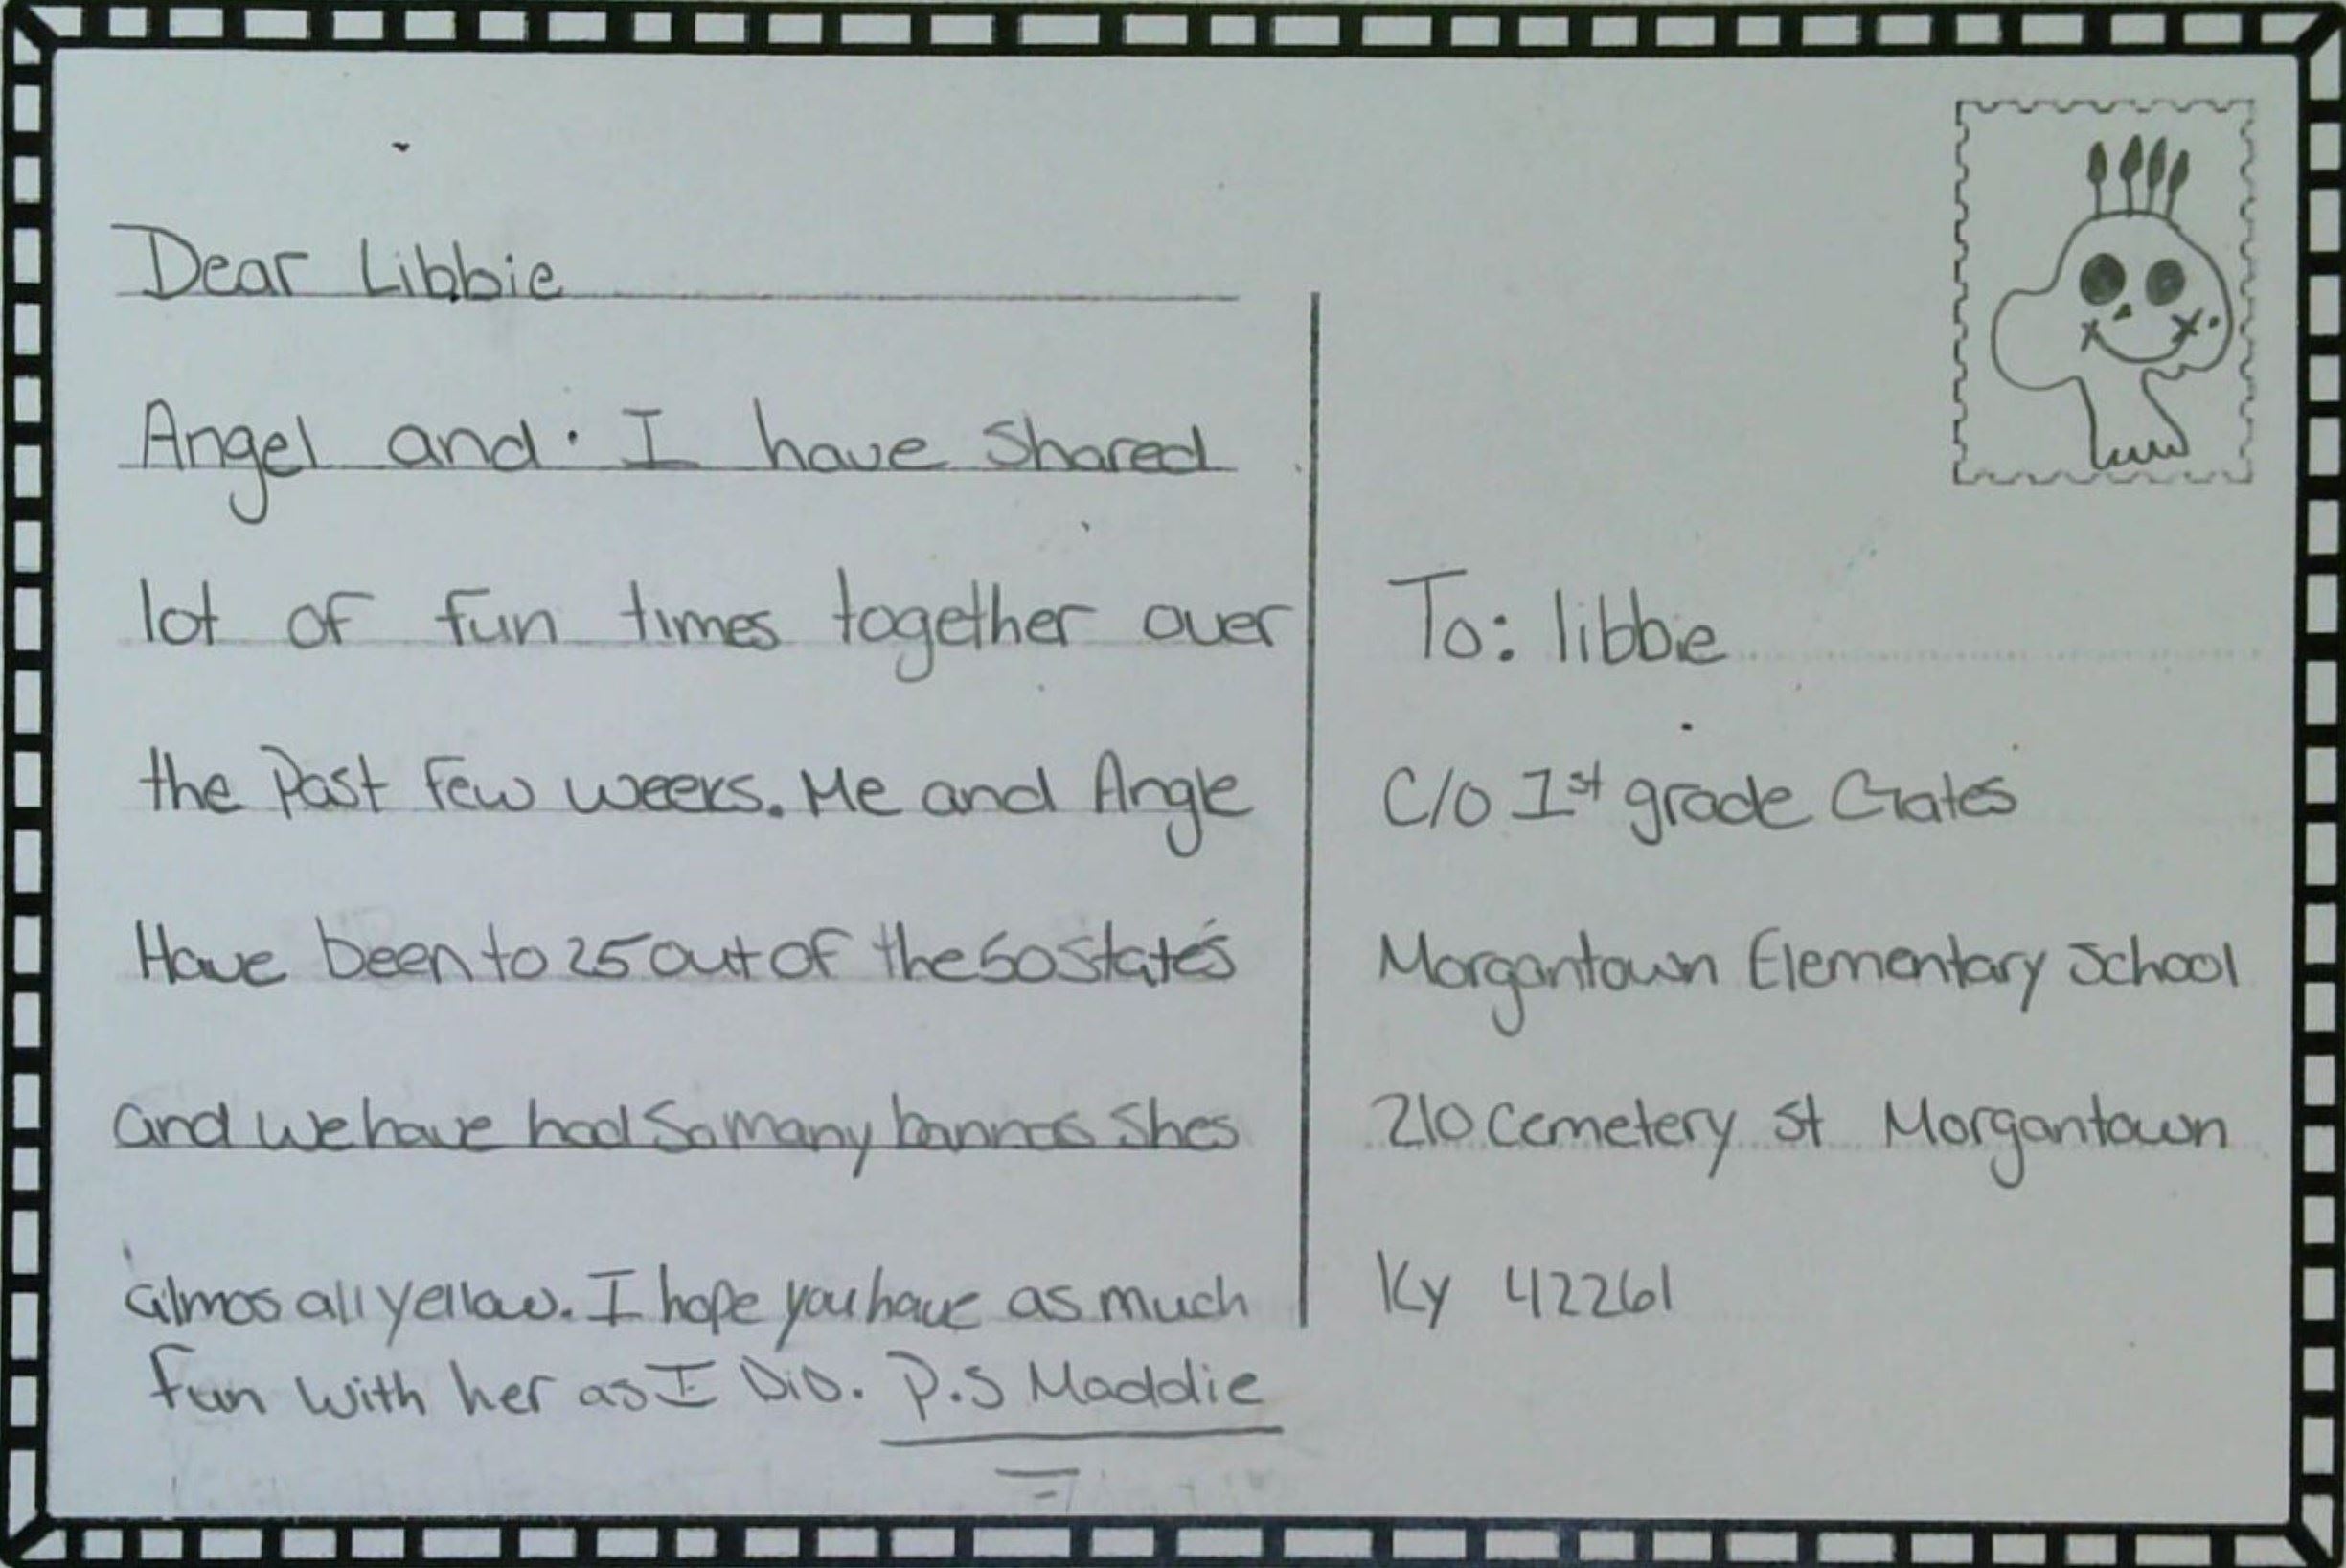 Dear Libbie
Angel and I have Shared
lot of fun times together over
the Past few weeks. Me and Angle
Have been to 25 out of the 50 States
and we have had So many bannas Shes
almos all yellow. I hope you have as much
fun with her as I DiD. P.S Maddie
To: libbie
C/O 1st grade Gates
Morgantown Elementary School
210 Cemetery st Morgantown
Ky 42261